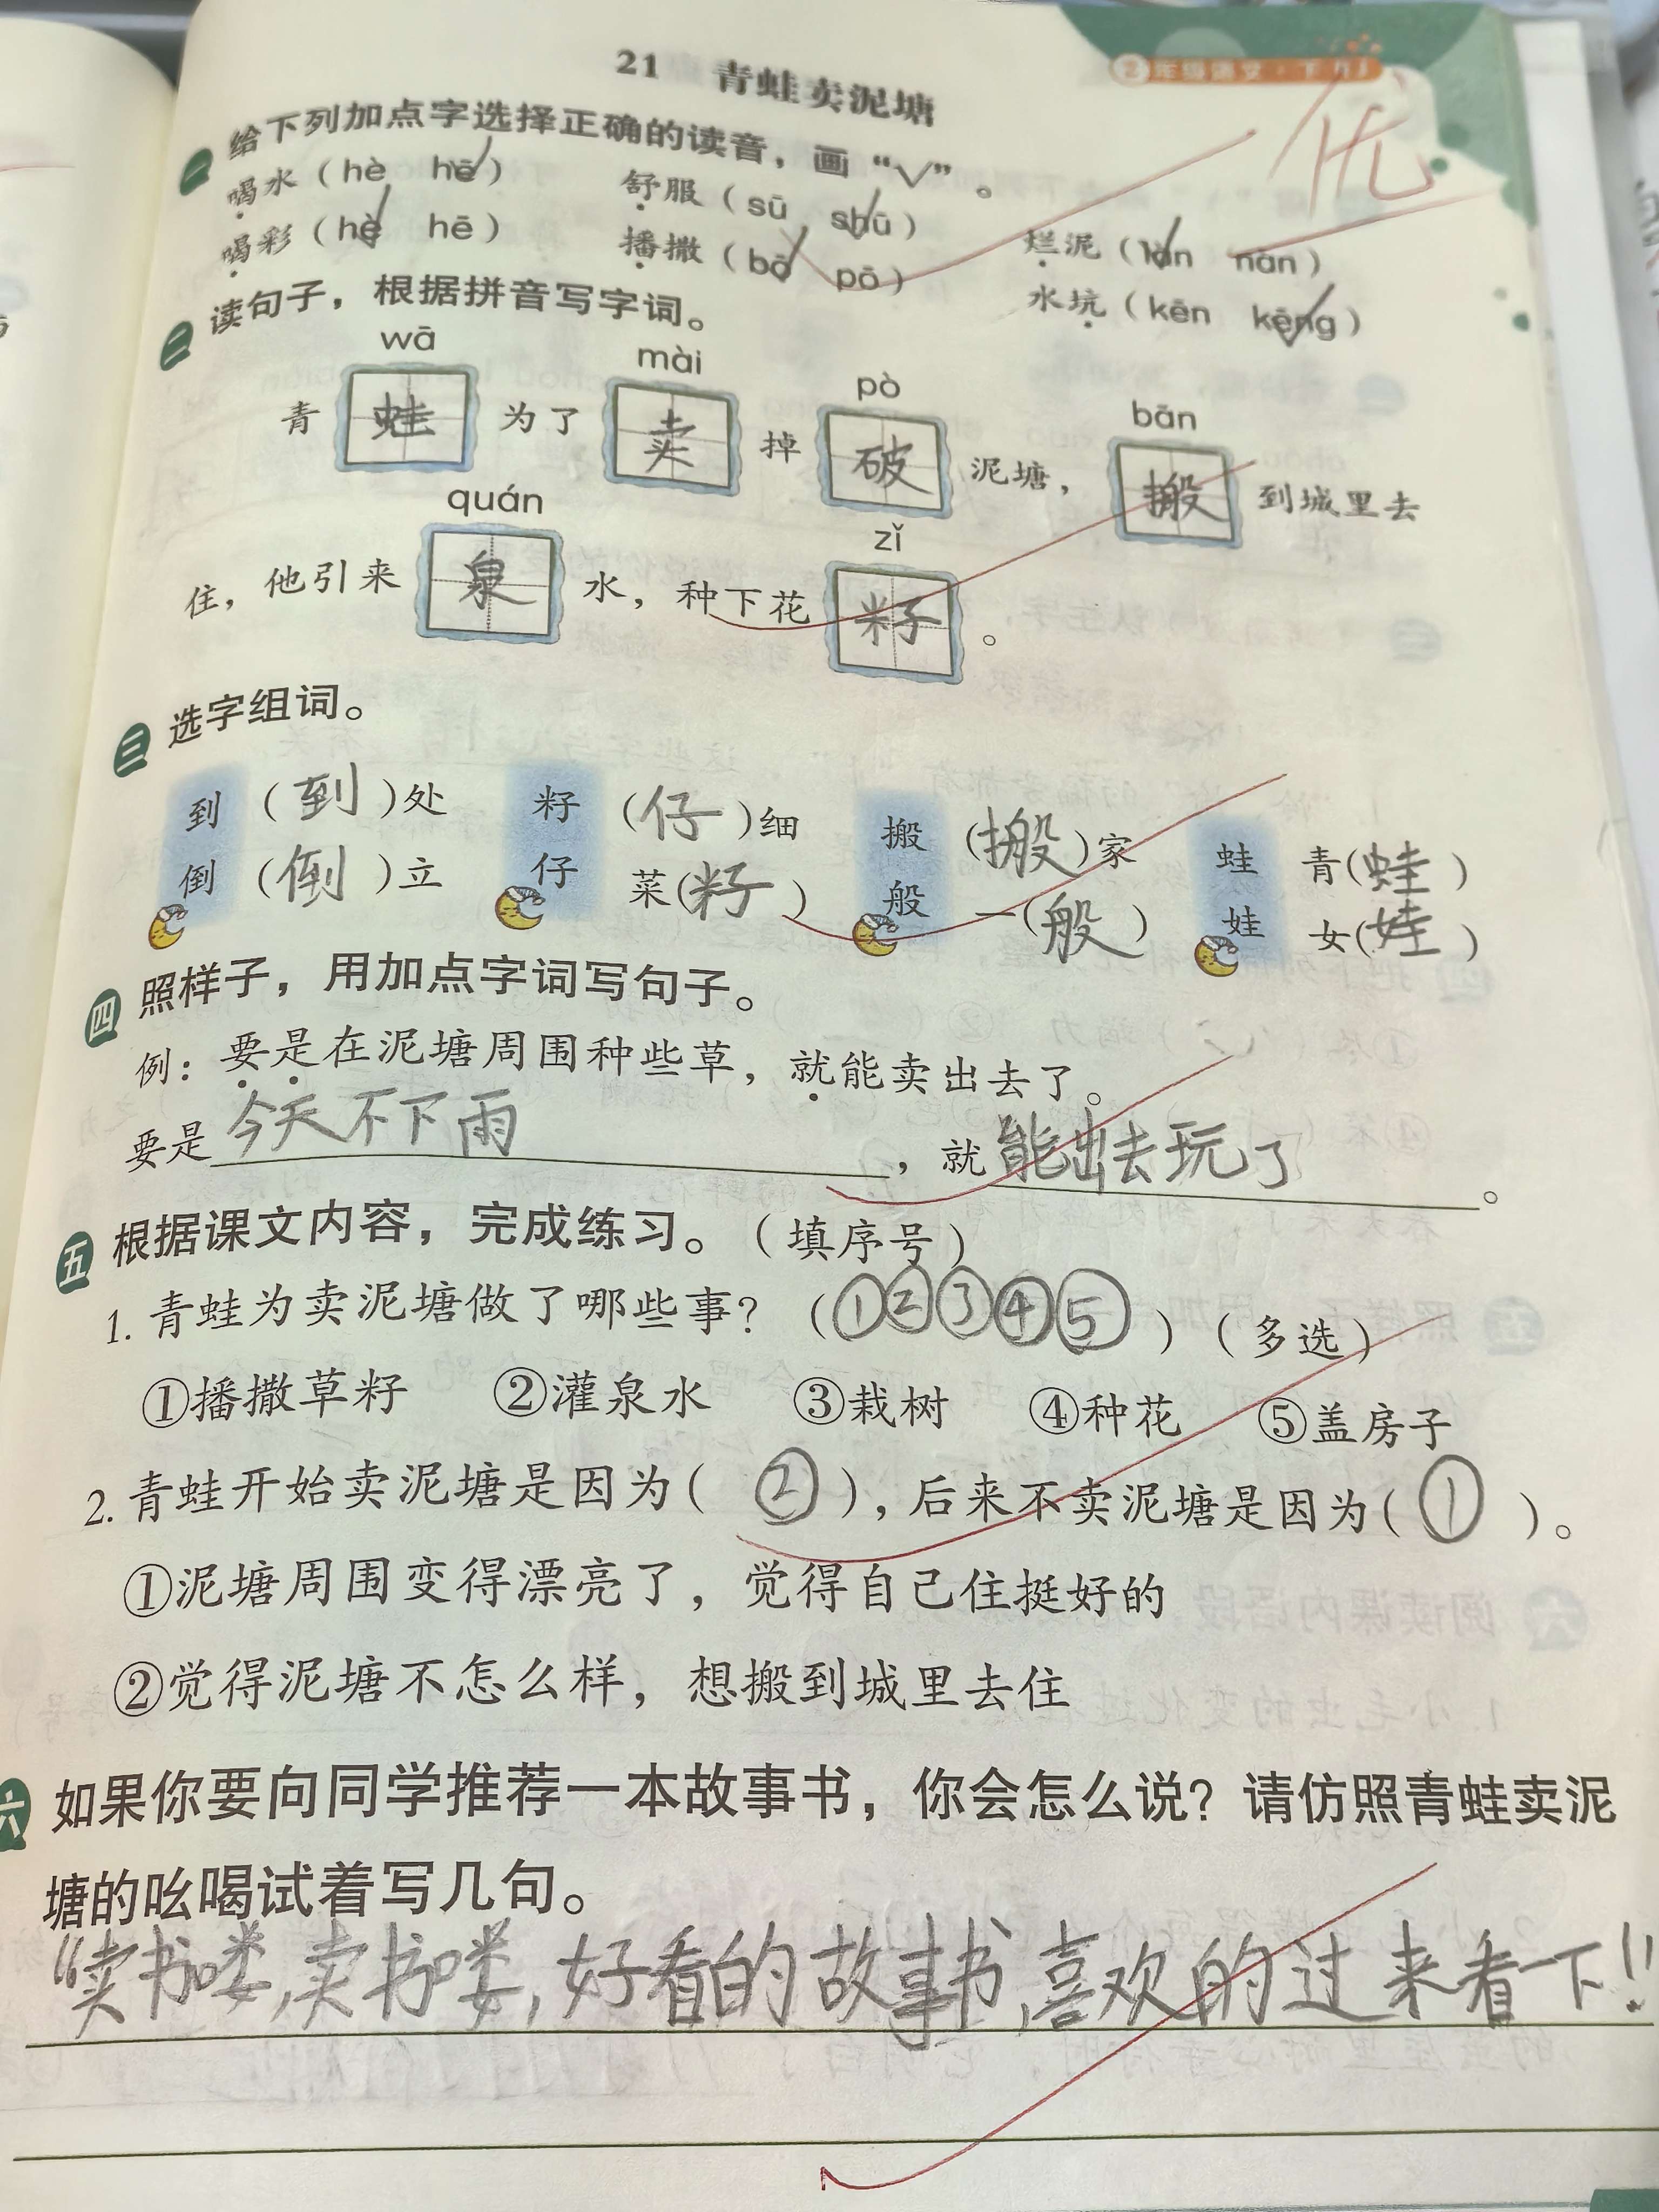 2年级语文·下 RJ
优
21 青蛙卖泥塘
一 给下列加点字选择正确的读音，画“√”。
喝水（hè hē√） 舒服（sū shū√） 烂泥（làn√ nàn）
喝彩（hè√ hē） 播撒（bō√ pō） 水坑（kēn kēng√）
二 读句子，根据拼音写字词。
wā mài pò bān
青蛙为了卖掉破泥塘，搬到城里去
quán zǐ
住，他引来泉水，种下花籽。
三 选字组词。
到（到）处 籽（仔）细 搬（搬）家 蛙 青（蛙）
倒（倒）立 仔 菜（籽） 般 一（般） 娃 女（娃）
四 照样子，用加点字词写句子。
例：要是在泥塘周围种些草，就能卖出去了。
要是今天不下雨，就能出去玩了。
五 根据课文内容，完成练习。（填序号）
1. 青蛙为卖泥塘做了哪些事？（①②③④⑤）（多选）
①播撒草籽 ②灌泉水 ③栽树 ④种花 ⑤盖房子
2. 青蛙开始卖泥塘是因为（②），后来不卖泥塘是因为（①）。
①泥塘周围变得漂亮了，觉得自己住挺好的
②觉得泥塘不怎么样，想搬到城里去住
六 如果你要向同学推荐一本故事书，你会怎么说？请仿照青蛙卖泥
塘的吆喝试着写几句。
“卖书喽，卖书喽，好看的故事书，喜欢的过来看一下！”